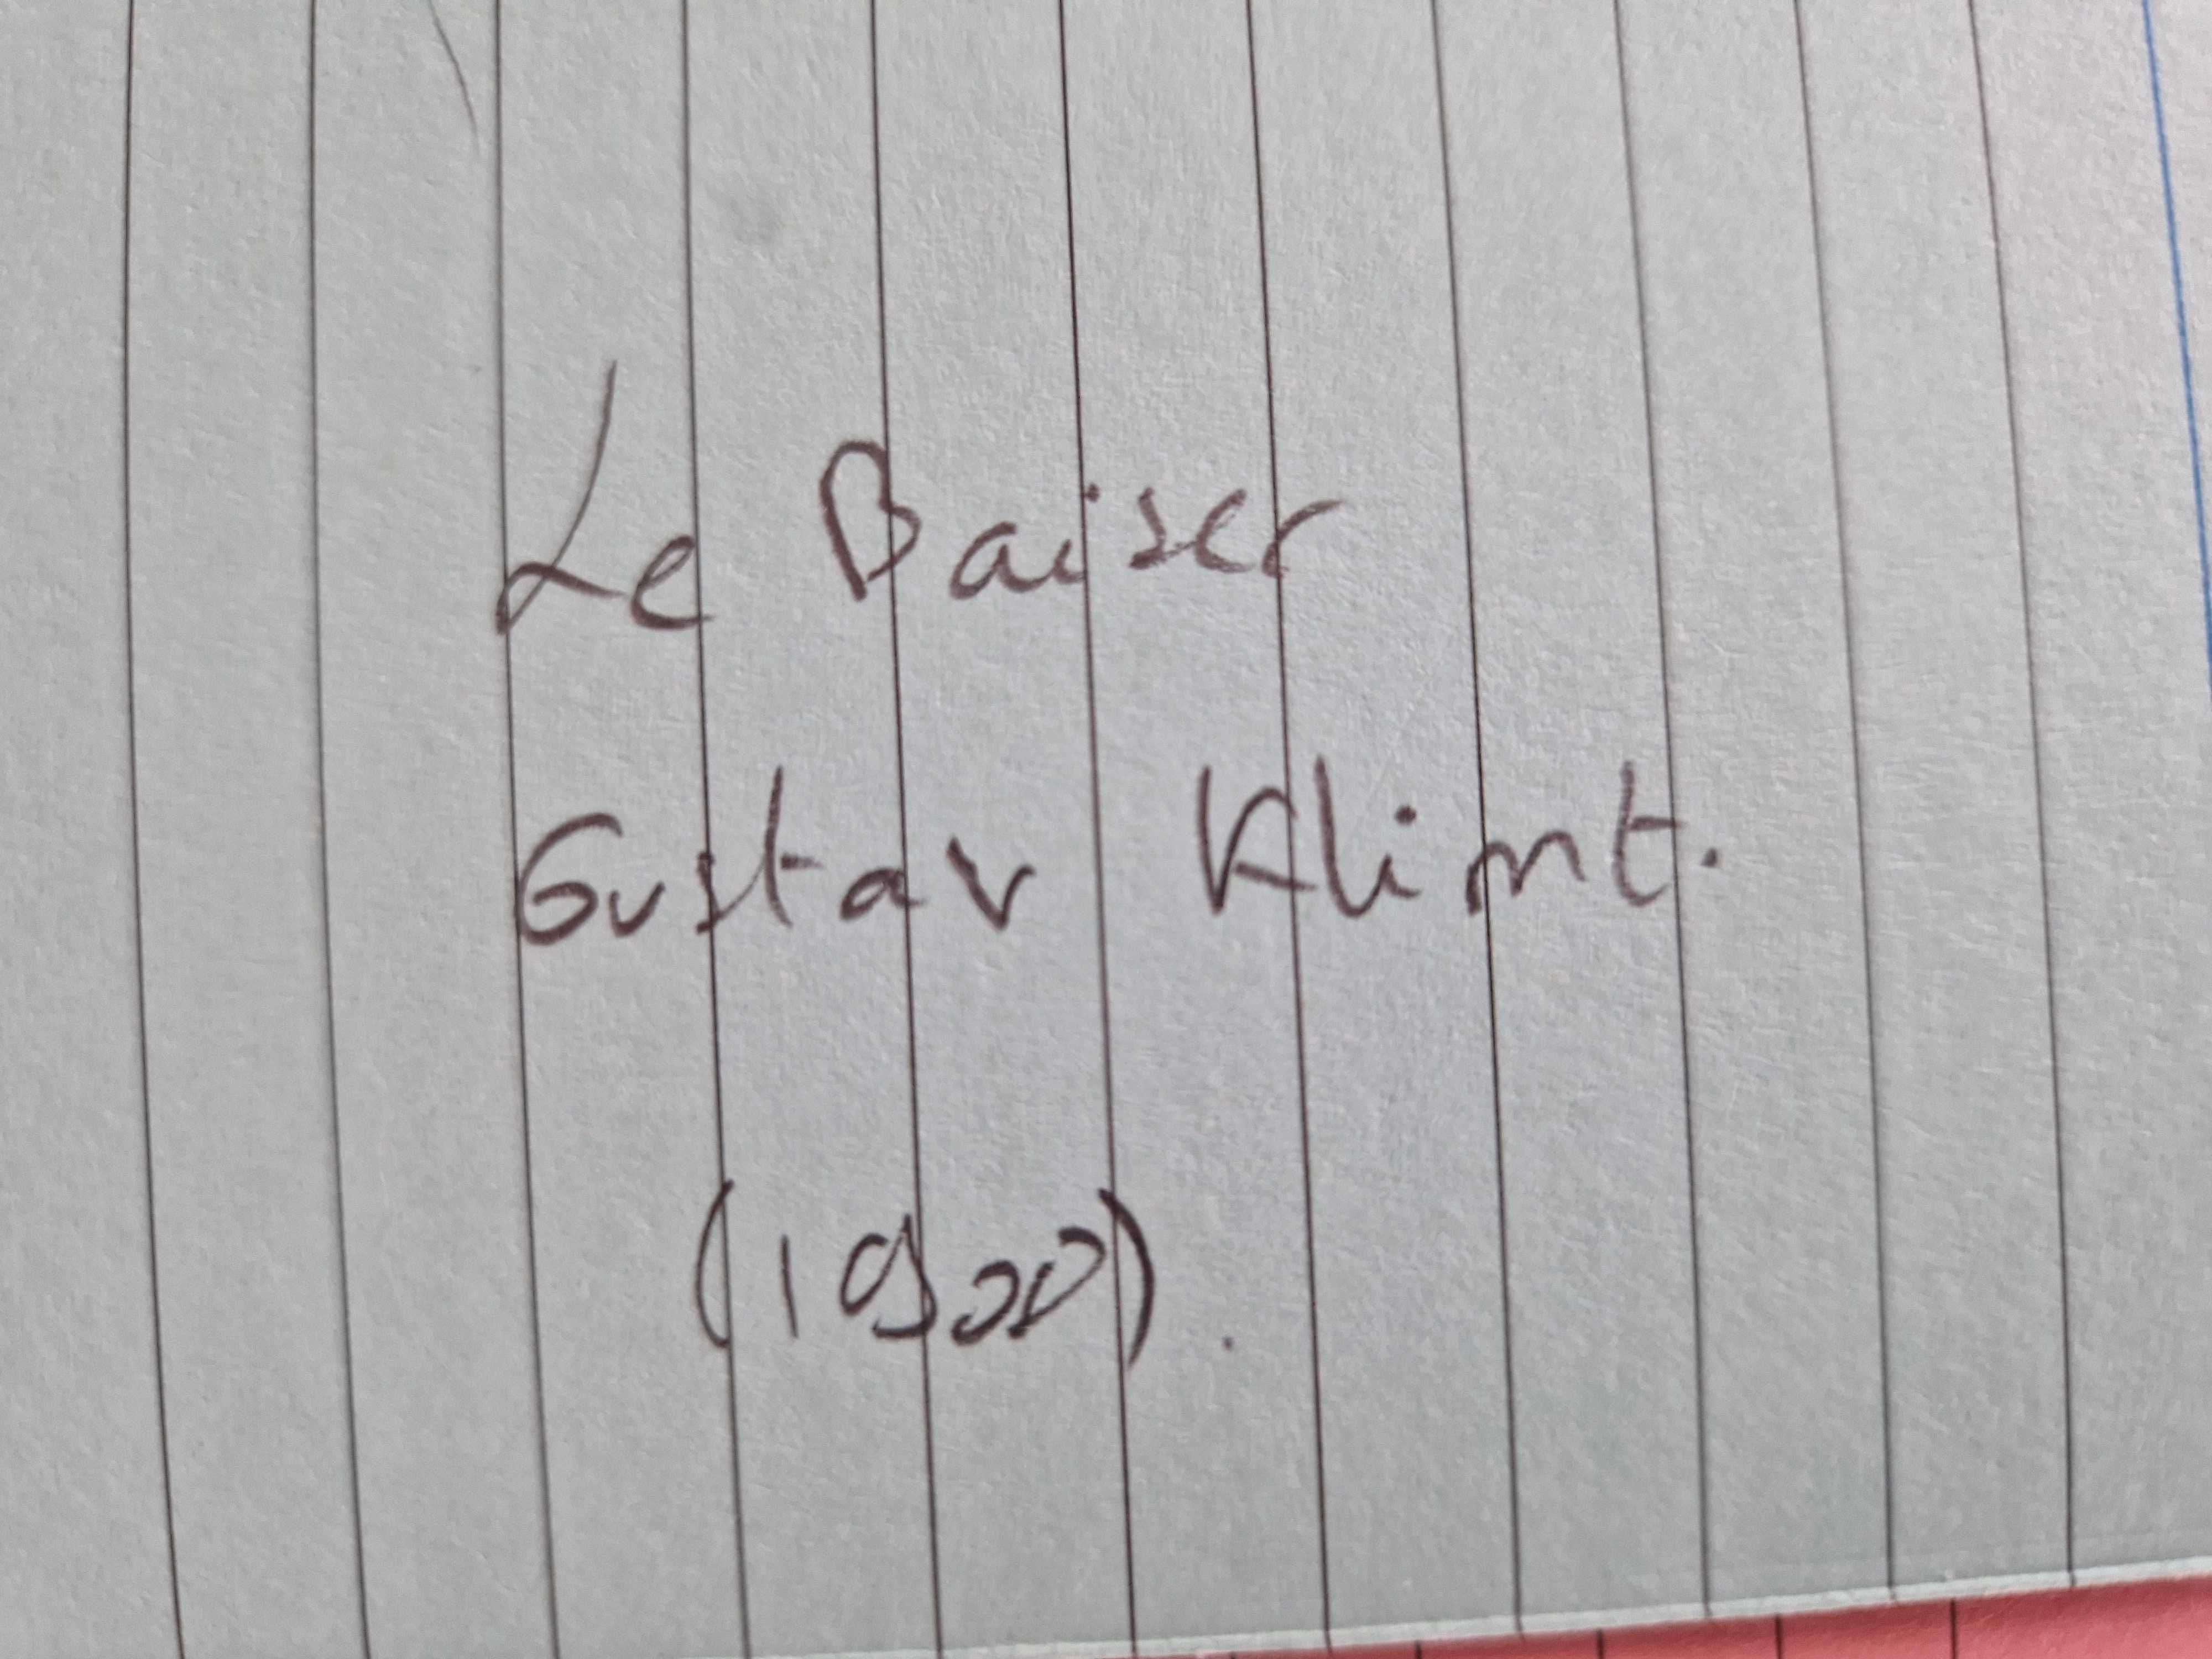 Le Baiser
Gustav Klimt.
(1900).